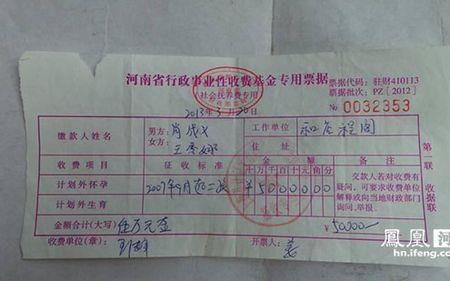 河南省行政事业性收费基金专用票据
社会抚养费专用
票据代码：驻财410113
票据批次：PZ［2012］
№ 0032353
2013年3月20日
缴款人姓名 男方：肖成义 工作单位 和庄程阁
女方：王 住址
收费项目 征收标准 十万千百十元角分
计划外怀孕 2007年 月起二孩 ¥5000000
计划外生育
交款人若对收费有疑问，可要求收费单位解释或向当地财政部门询问、举报。
金额合计(大写) 伍万元整 ¥50000—
收费单位(章)： 开票人：姜
第一联
凤凰河
hn.ifeng.com